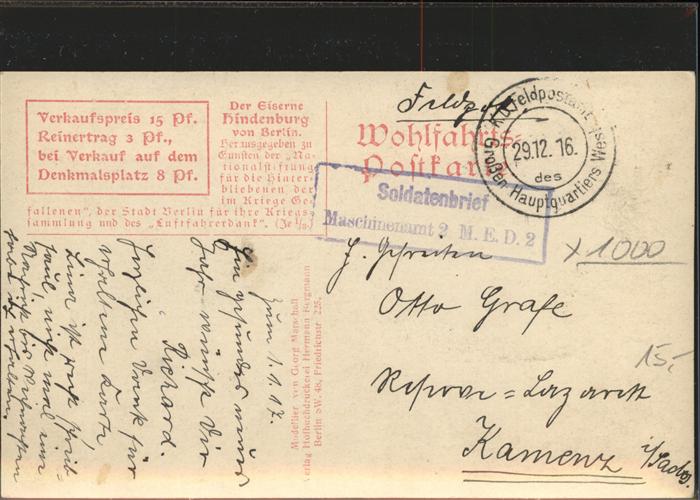 Verkaufspreis 15 Pf.
Reinertrag 3 Pf.,
bei Verkauf auf dem
Denkmalsplatz 8 Pf.
Der Eiserne
Hindenburg
von Berlin.
Herausgegeben zu
Gunsten der „Na-
tionalstiftung
für die Hinter-
bliebenen der
im Kriege Ge-
fallenen", der Stadt Berlin für ihre Kriegs-
sammlung und des „Luftfahrerdank". (Je 1/3)
Feldpost
Wohlfahrts-
Postkarte
K.D. Feldpostamt
29.12.16.
des
Großen Hauptquartiers West
Soldatenbrief
Maschinenamt 2 M. E. D. 2
x 1000
15,-
Gefreiten
Otto Grafe
Reserve=Lazarett
Kamenz i/Sachs.
Modellier von Georg Marschall
Verlag Hofbuchdruckerei Hermann Bergmann
Berlin SW. 48, Friedrichstr. 225.
Zum 1.1.17.
Ein gesundes neues
Jahr wünscht Dir
Richard.
Herzlichen Dank für
erhaltene Karte,